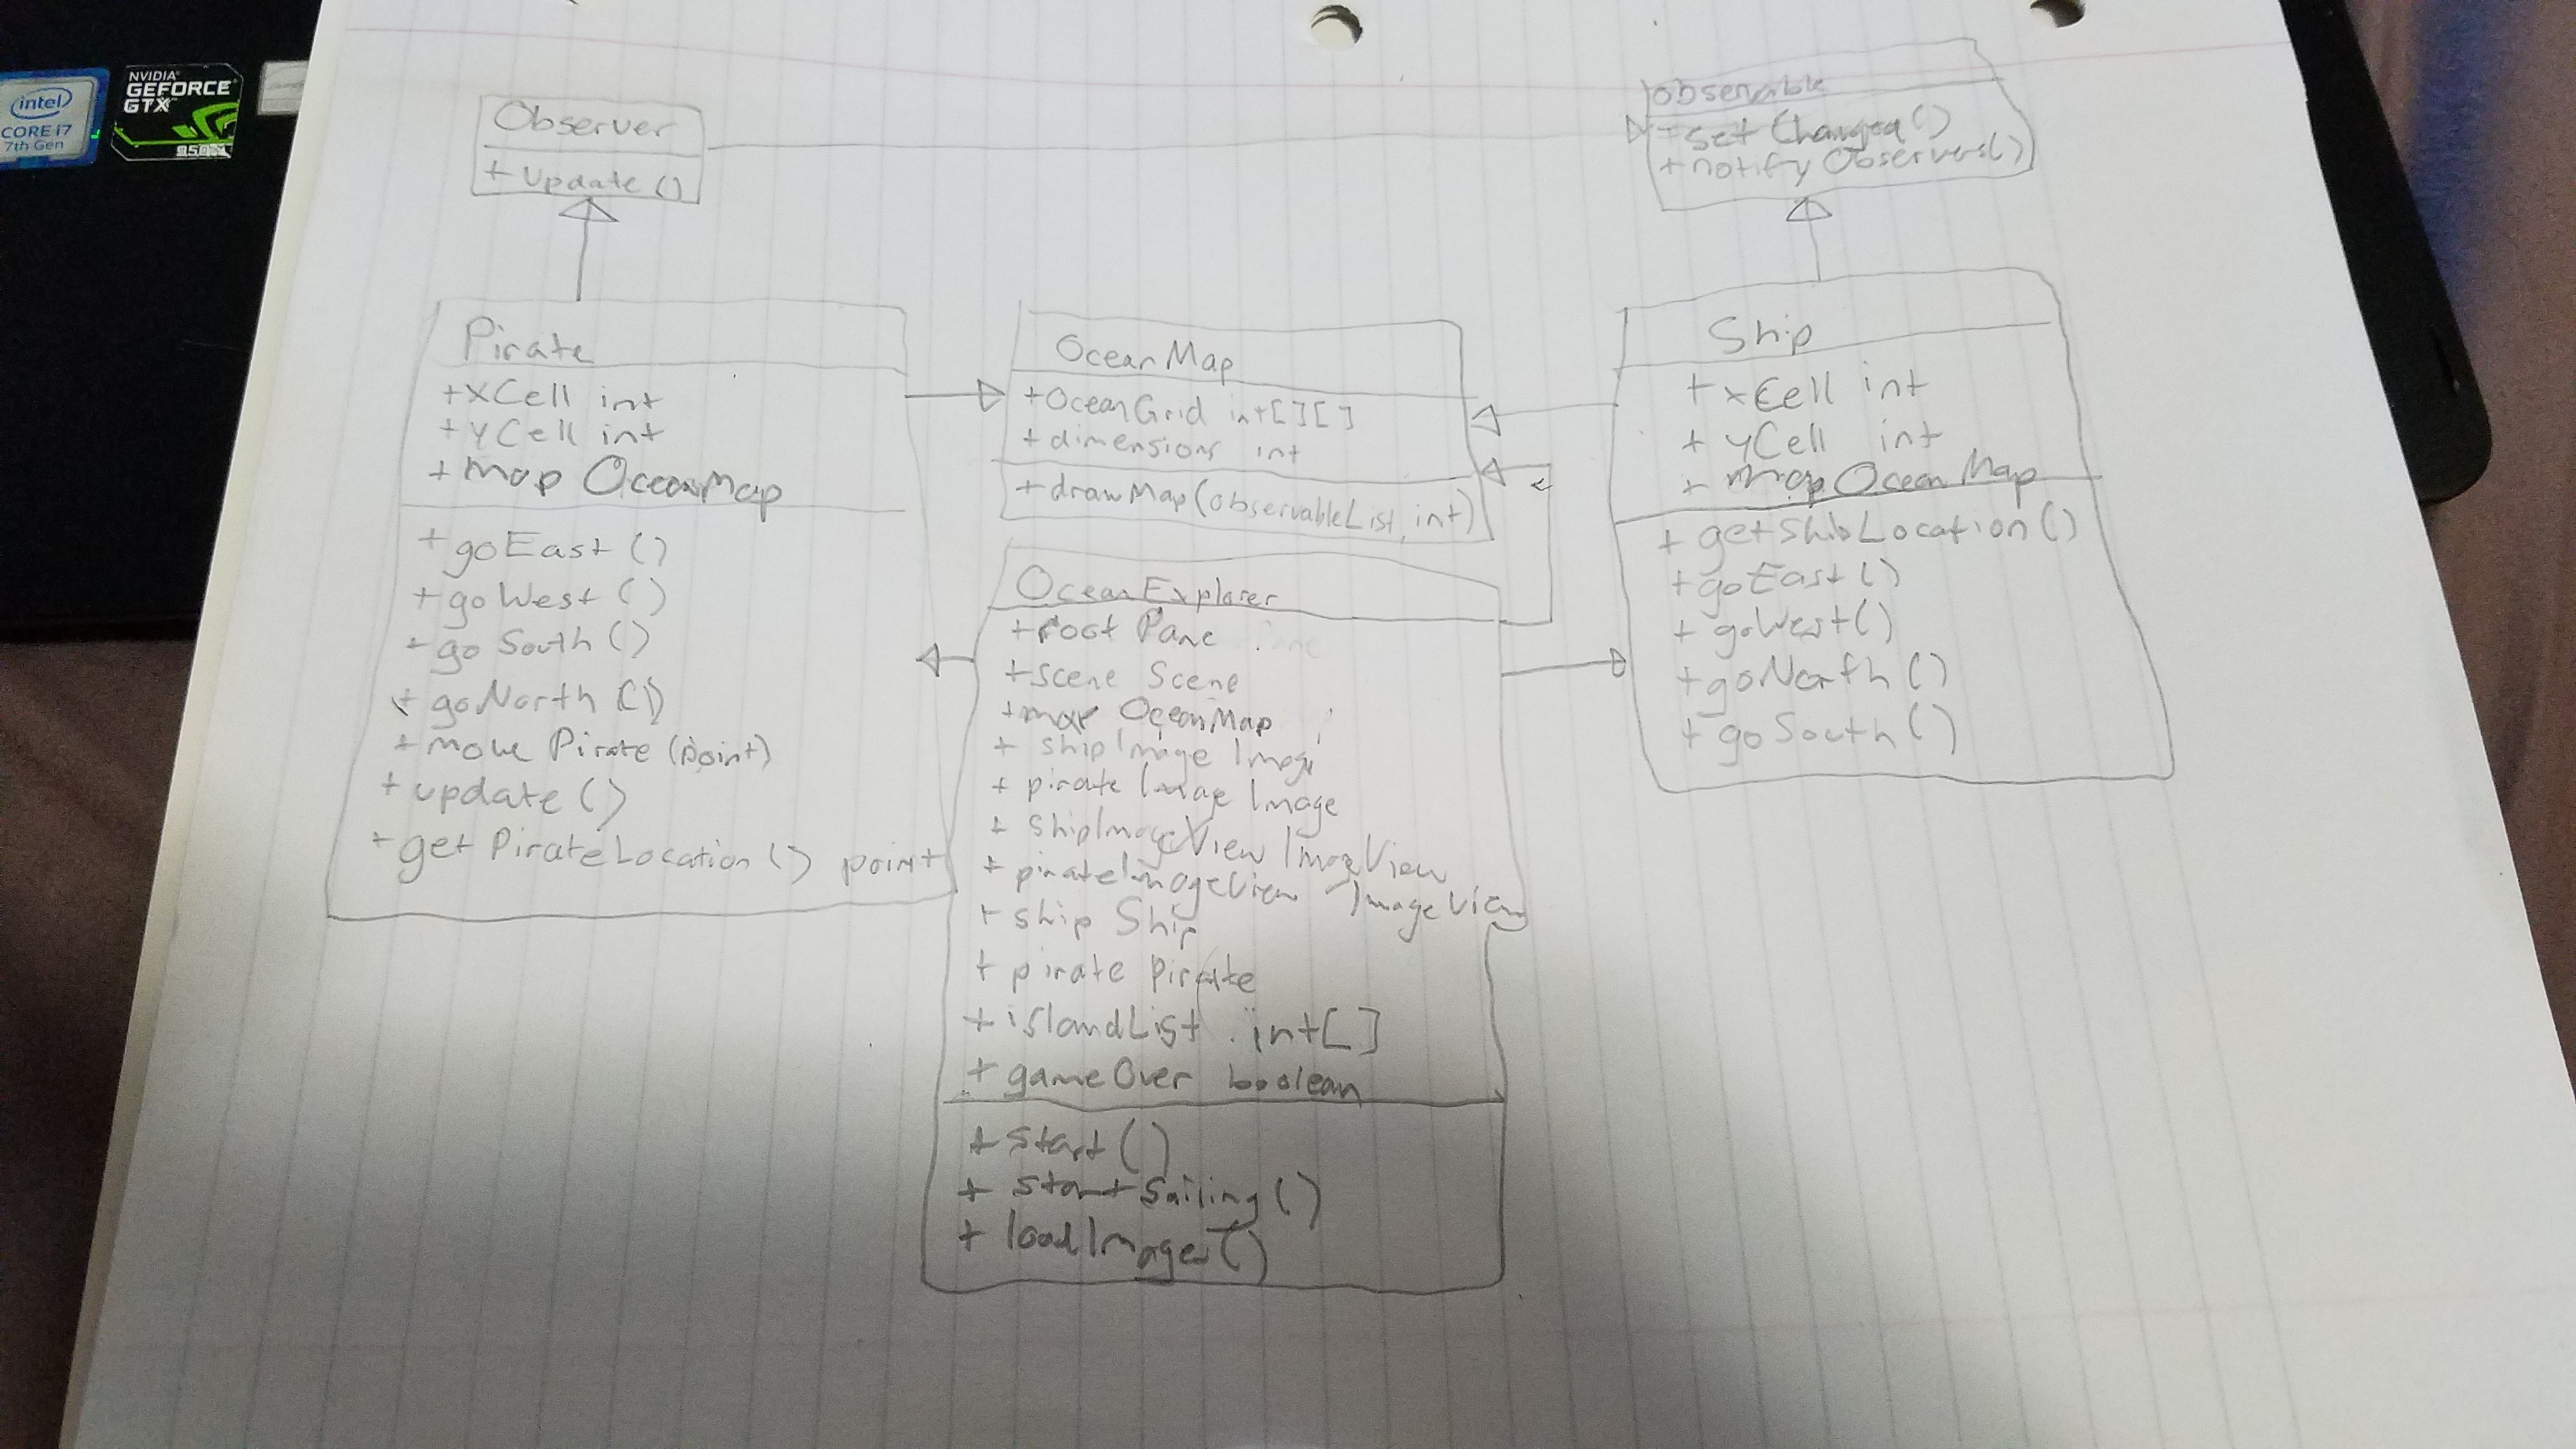 intel
CORE i7
7th Gen
NVIDIA
GEFORCE
GTX
Observer
+ update ()
observable
+ set Changed ()
+ notify Observers()
Pirate
+ xCell int
+ yCell int
+ map OceanMap
+ goEast ()
+ goWest ()
+ go South ()
+ goNorth ()
+ move Pirate (point)
+ update ()
+ get PirateLocation () point
OceanMap
+ OceanGrid int[][]
+ dimensions int
+ drawMap(observableList, int)
Ship
+ xCell int
+ yCell int
+ map OceanMap
+ getShipLocation ()
+ goEast ()
+ goWest()
+ goNorth ()
+ goSouth ()
OceanExplorer
+ root Pane
+ scene Scene
+ map OceanMap
+ shipImage Image
+ pirateImage Image
+ shipImageView ImageView
+ pirateImageView ImageView
+ ship Ship
+ pirate pirate
+ islandList int[]
+ gameOver boolean
+ start ()
+ startSailing ()
+ loadImages ()